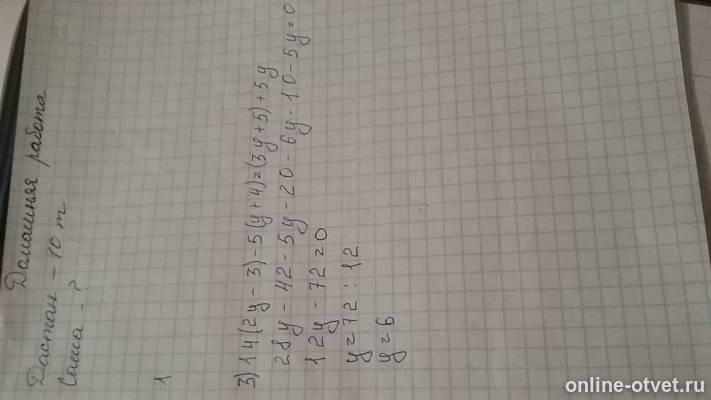 Домашняя работа
Дастан - 10 т
Саша - ?
1
3) 14(2y-3)-5(y+4)=(3y+5)+5y
28y-42-5y-20-6y-10-5y=0
12y-72=0
y=72:12
y=6
online-otvet.ru